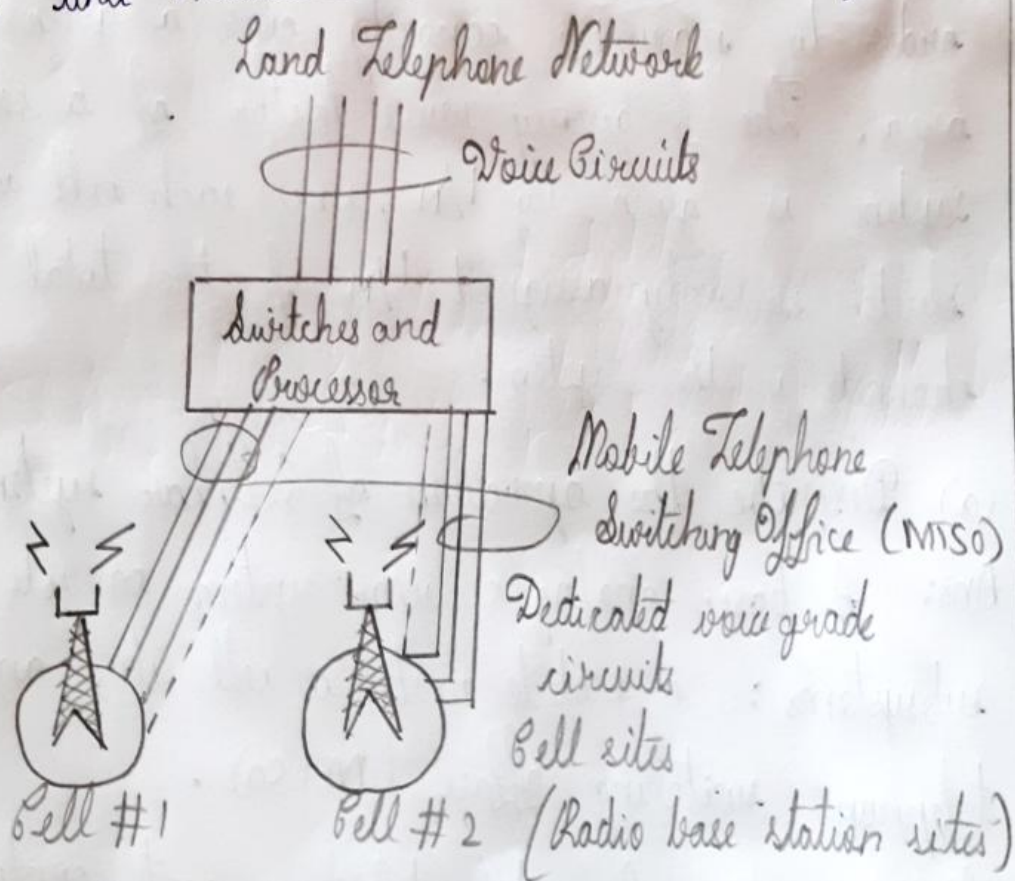 Land Telephone Network
Voice Circuits
Switches and
Processor
Mobile Telephone
Switching Office (MTSO)
Dedicated voice grade
circuits
Cell sites
Cell #1
Cell #2 (Radio base station sites)